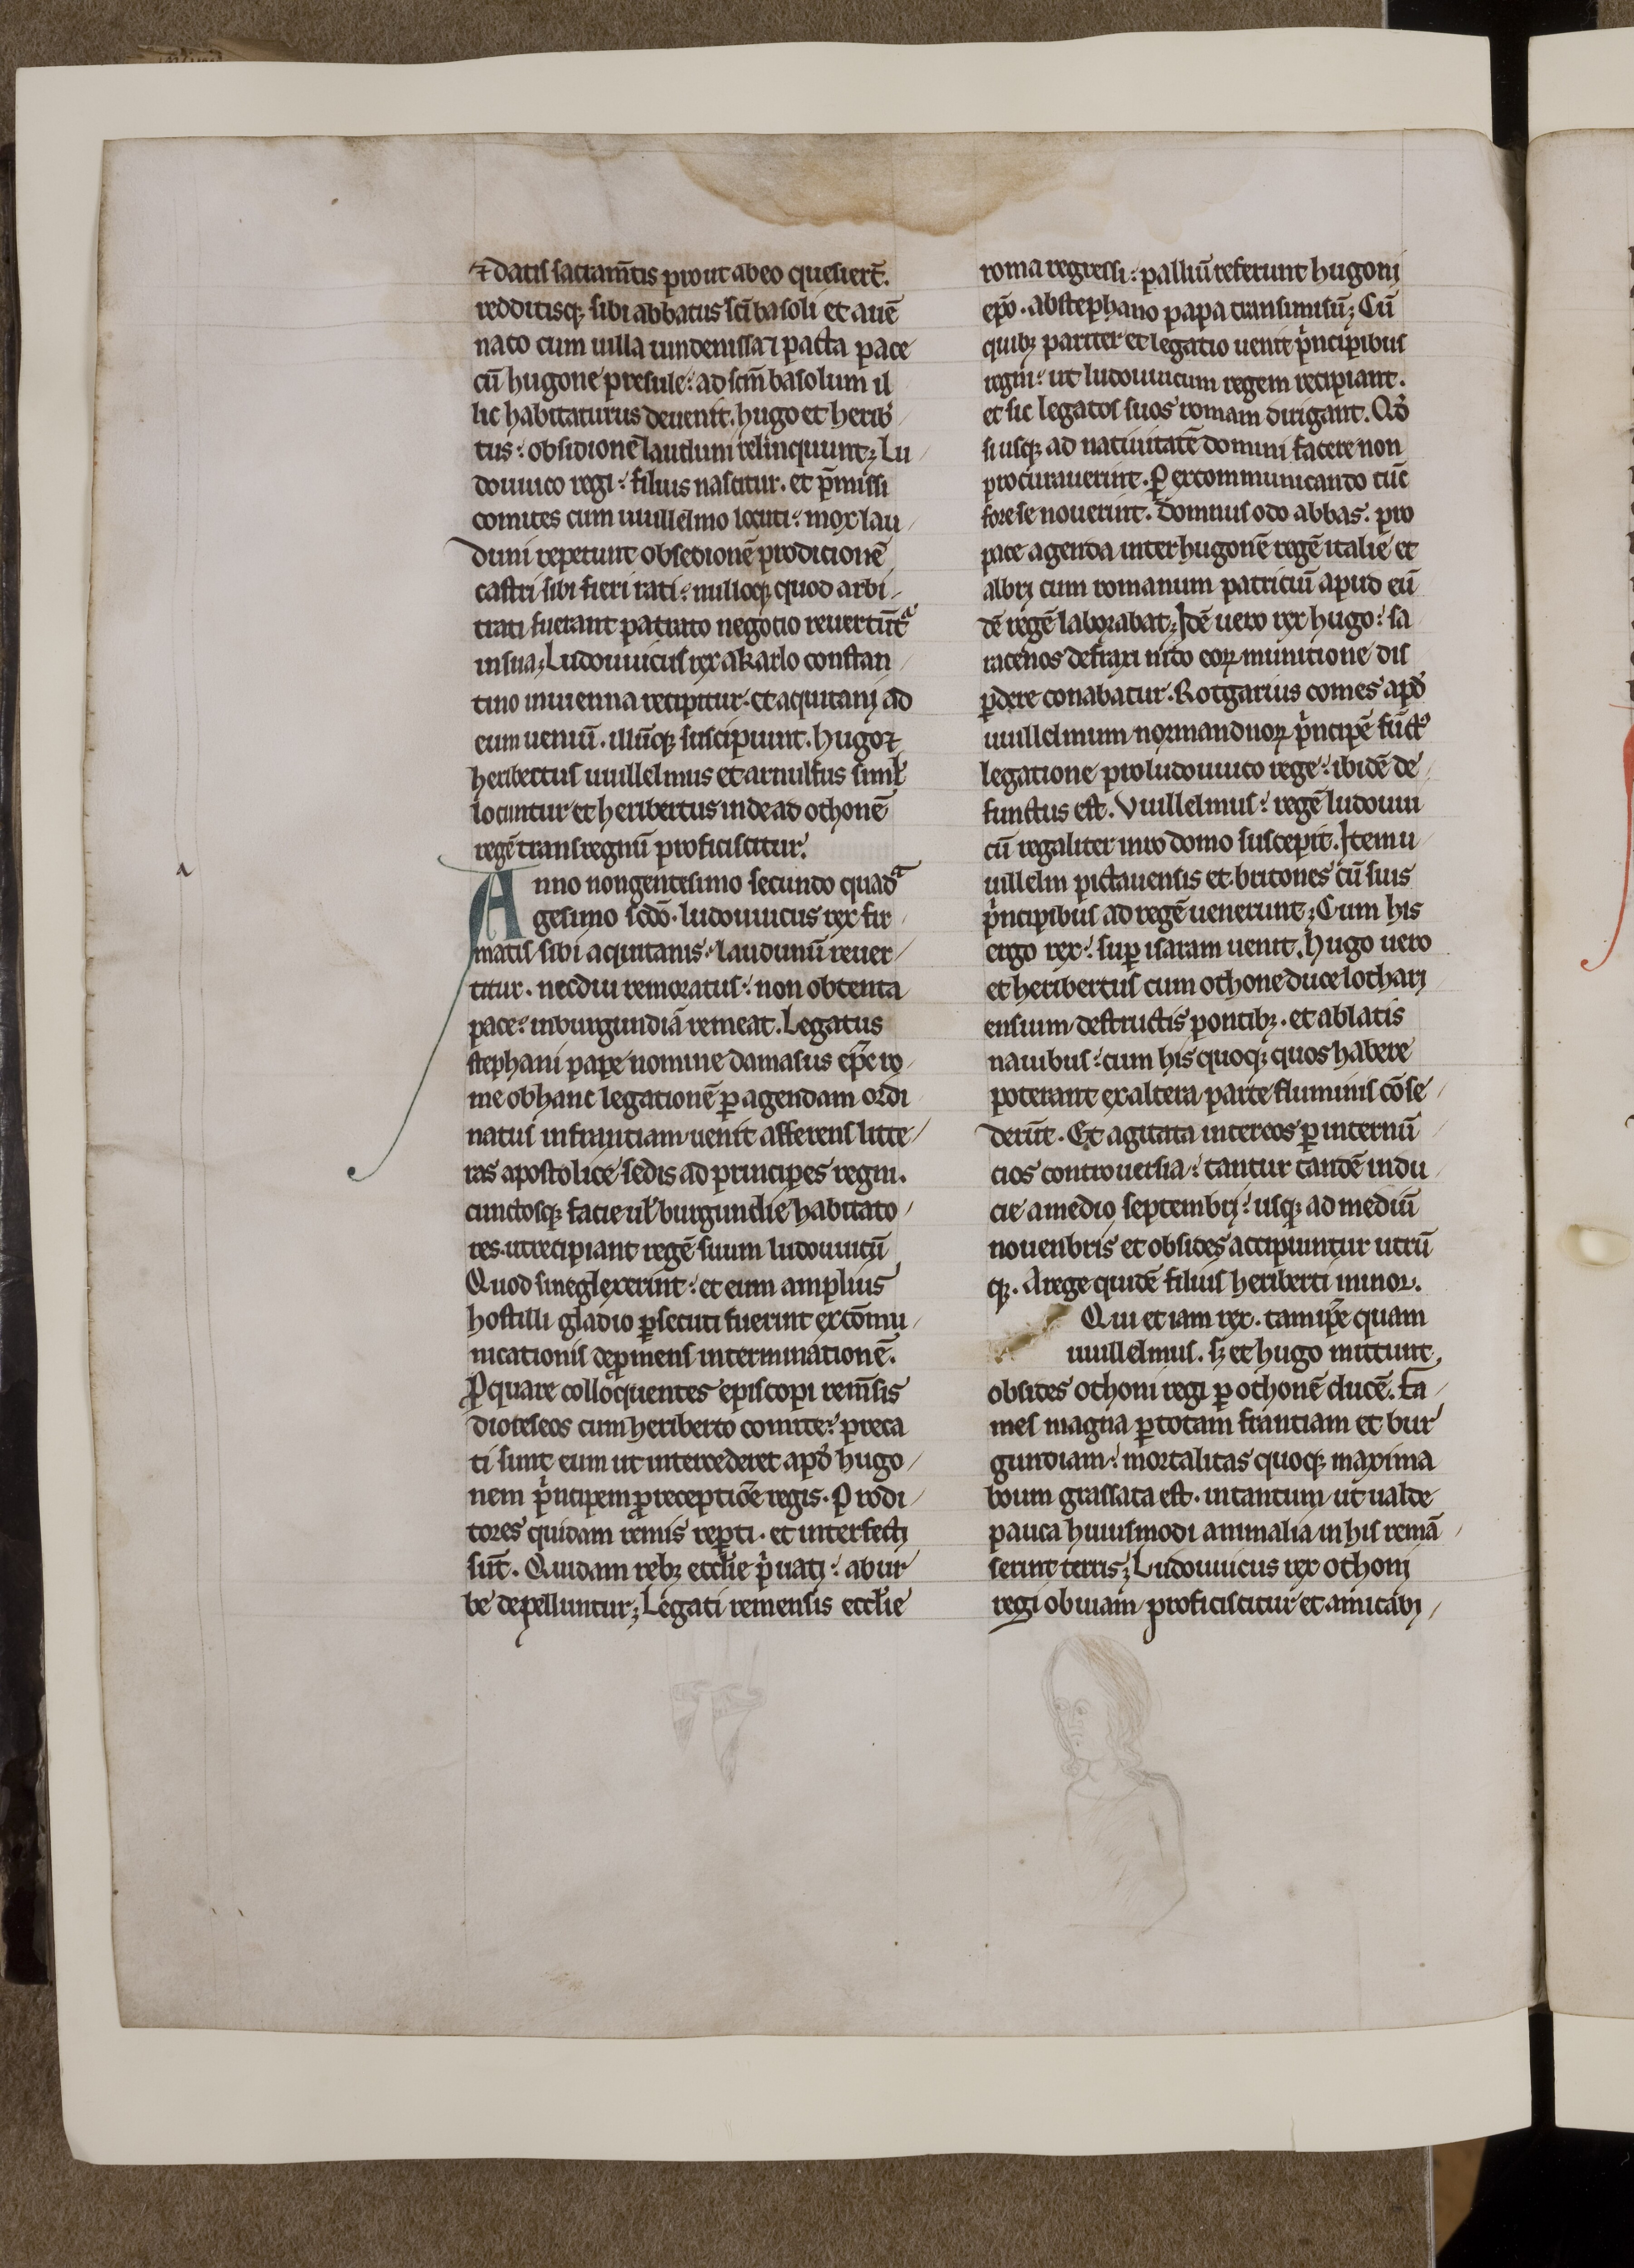 ⁊ datis sacram̄tis prout abeo quesiert̄.
redditisq; sibi abbatiis sc̄i basoli et auē
nato cum uilla uindenissa ⁊ pacta pace
cū hugone presule: ad scm̄ basolum il
lic habitaturus deuenit. hugo et herib̾
tus: obsidionē laudum relinquunt; Lu
douuico regi: filius nascitur. et p̄missi
comites cum uuillelmo locuti: mox lau
duni repetunt obsedionē proditionē
castri sibi fieri rati: nulloq; quod arbi
trati fuerant patrato negotio reuertūtᷓ
in sua; Ludouuicus rex a karlo constan
tino in uienna recipitur. et aquitani ad
eum ueniū. illūq; suscipiunt. hugo ⁊
heribertus uuillelmus et arnulfus simł
locuntur et heribertus inde ad othonē
regē trans regnū proficiscitur.
Anno nongentesimo secundo quadᷓ
gesimo scd̄o. ludouuicus rex fir
matis sibi aquitanis: laudunū reuer
titur. nec diu remoratus: non obtenta
pace: in burgundiā remeat. Legatus
stephani pape nomine damasus ep̄c ro
me ob hanc legationē ꝑ agendam ordi
natus in franciam uenit afferens litte
ras apostolice sedis ad principes regni.
cunctosq; facie ul̓ burgundie habitato
res. ut recipiant regē suum ludouuicū
Quod si neglexerint: et eum amplius
hostili gladio ꝑsecuti fuerint excōmu
nicationis depmens interminationē.
Ꝓ quare colloquentes episcopi rem̄sis
dioceseos cum heriberto comite: preca
ti sunt eum ut intercederet apd̓ hugo
nem pͥncipem ꝓ receptiōe regis. Prodi
tores quidam remis reperti. et interfecti
sūt. Quidam reb; eccl̓ie pͥuati: ab ur
be depelluntur; Legati remensis eccl̓ie
roma regressi: palliū referunt hugoni
ep̄o. ab stephano papa transmisū; Cū
quib; pariter et legatio uenit pͥncipibus
regni: ut ludouuicum regem recipiant.
et sic legatos suos romam dirigant. Qd̓
si usq; ad natiuitatē domini facere non
procurauerint. Ꝓ excommunicando tūc
fore se nouerint. Domnus odo abbas. pro
pace agenda inter hugonē regē italie et
albri cum romanum patriciū apud eū
dē regē laborabat; Idē uero rex hugo: sa
racenos de fraxi nito eoꝝ munitione dis
ꝑdere conabatur. Rotgarius comes apd̓
uuillelmum normandnoꝝ pͥncipē fūctꝰ
legatione pro ludouuico rege: ibidē de
functus est. Vuillelmus: regē ludouui
cū regaliter in ro domo suscepit. Item u
uillelm pictauensis et britones cū suis
pͥncipibus ad regē uenerunt; Cum his
ergo rex: suꝑ isaram uenit. hugo uero
et heribertus cum othone duce lothari
ensium destructis pontib;. et ablatis
nauibus: cum his quoq; quos habere
poterant ex altera parte fluminis cōse
derūt. Et agitata inter eos ꝑ internū
cios controuersia: tantur tandē indu
cie a medio septembri: usq; ad mediū
nouenbris et obsides accipiuntur utrū
q;. A rege quidē filius heriberti minor.
Qui etiam rex. tam ip̄e quam
uuillelmus. sȝ et hugo mittunt,
obsides othoni regi ꝑ othonē ducē. fa
mes magna ꝑ totam franciam et bur
gundiam: mortalitas quoq; maxima
boum grassata est. intantum ut ualde
pauca huiusmodi animalia in his remā
serint terris; Ludouuicus rex othoni
regi obuiam proficiscitur et amicabi